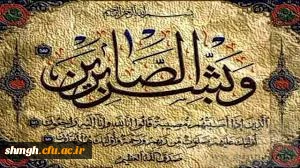 بسم الله الرحمن الرحيم
وَبَشِّرِ الصَّابِرِينَ
الذين إذا أصابتهم مصيبة قالوا إنا لله وإنا إليه راجعون
صدق الله العظيم
shmgh.cfu.ac.ir